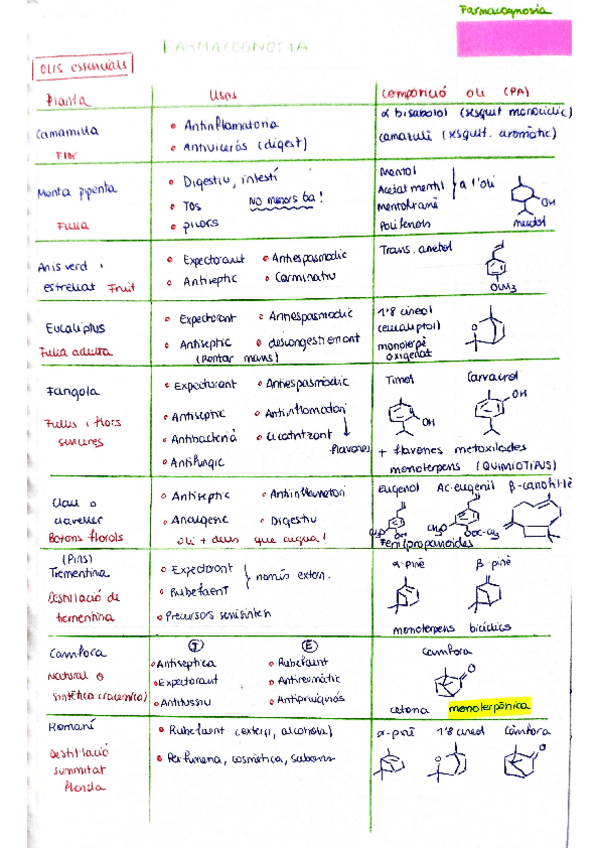 Farmacognosia
FARMACOGNOSIA
OLIS ESSENCIALS
Planta
Usos
Composició oli (PA)
Camamilla
Flor
• Antiinflamatoria
• Antiulcerós (digest)
α bisabolol (sesquit monocíclic)
camazulè (sesquit. aromàtic)
Menta piperita
Fulla
• Digestiu, intestí
• Tos
NO menors 6a!
Mentol
Acetat mentil } a l'oli
Mentofurà
Polifenols
OH
mentol
Anis verd i
estrellat Fruit
• Expectorant
• Antiespasmòdic
• Antisèptic
• Carminatiu
Trans. anetol
OCH3
Eucaliptus
Fulla adulta
• Expectorant
• Antiespasmòdic
• Antisèptic
(rentar mans)
• descongestionant
1'8 cineol
(eucaliptol)
monoterpè
oxigenat
O
Farigola
Fulles i flors
senceres
• Expectorant
• Antiespasmòdic
• Antisèptic
• Antiinflamatori
• Antibacterià
• Cicatritzant
flavones
• Antifúngic
Timol
Carvacrol
OH
OH
+ flavones metoxilades
monoterpens (QUIMIOTIPUS)
Clau o
claveller
Botons florals
• Antisèptic
• Antiinflamatori
• Analgèsic
• Digestiu
oli + dens que aigua!
eugenol
Ac. eugenil
CH3O
OH
CH3O
OOC-CH3
Fenilpropanoides
(Pins)
Trementina
Destil·lació de
trementina
• Expectorant
• Rubefaent
} només extern.
• Precursors semisíntesi
α-pinè
β-pinè
monoterpens bicíclics
Camfora
Natural o
sintètica (racèmica)
I
E
• Antiseptica
• Rubefaent
• Expectorant
• Antireumàtic
• Antitussiu
• Antipruiginós
Camfora
O
cetona monoterpènica
Romaní
Destil·lació
summitat
florida
• Rubefaent (extern, alcohola)
• Perfumeria, cosmètica, sabons
α-pinè
1'8 cineol
Càmfora
O
O